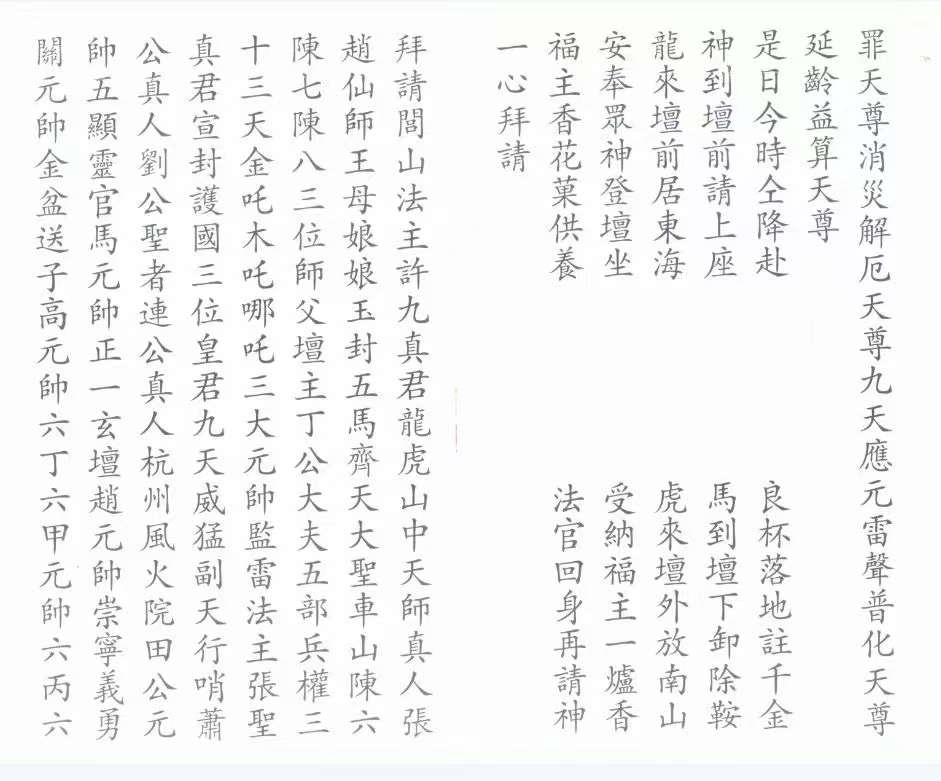 罪天尊消災解厄天尊九天應元雷聲普化天尊
延齡益算天尊
是日今時仝降赴　良杯落地註千金
神到壇前請上座　馬到壇下卸除鞍
龍來壇前居東海　虎來壇外放南山
安奉眾神登壇坐　受納福主一爐香
福主香花菓供養　法官回身再請神
一心拜請
拜請閭山法主許九真君龍虎山中天師真人張
趙仙師王母娘娘玉封五馬齊天大聖車山陳六
陳七陳八三位師父壇主丁公大夫五部兵權三
十三天金吒木吒哪吒三大元帥監雷法主張聖
真君宣封護國三位皇君九天威猛副天行哨蕭
公真人劉公聖者連公真人杭州風火院田公元
帥五顯靈官馬元帥正一玄壇趙元帥崇寧義勇
關元帥金盆送子高元帥六丁六甲元帥六丙六